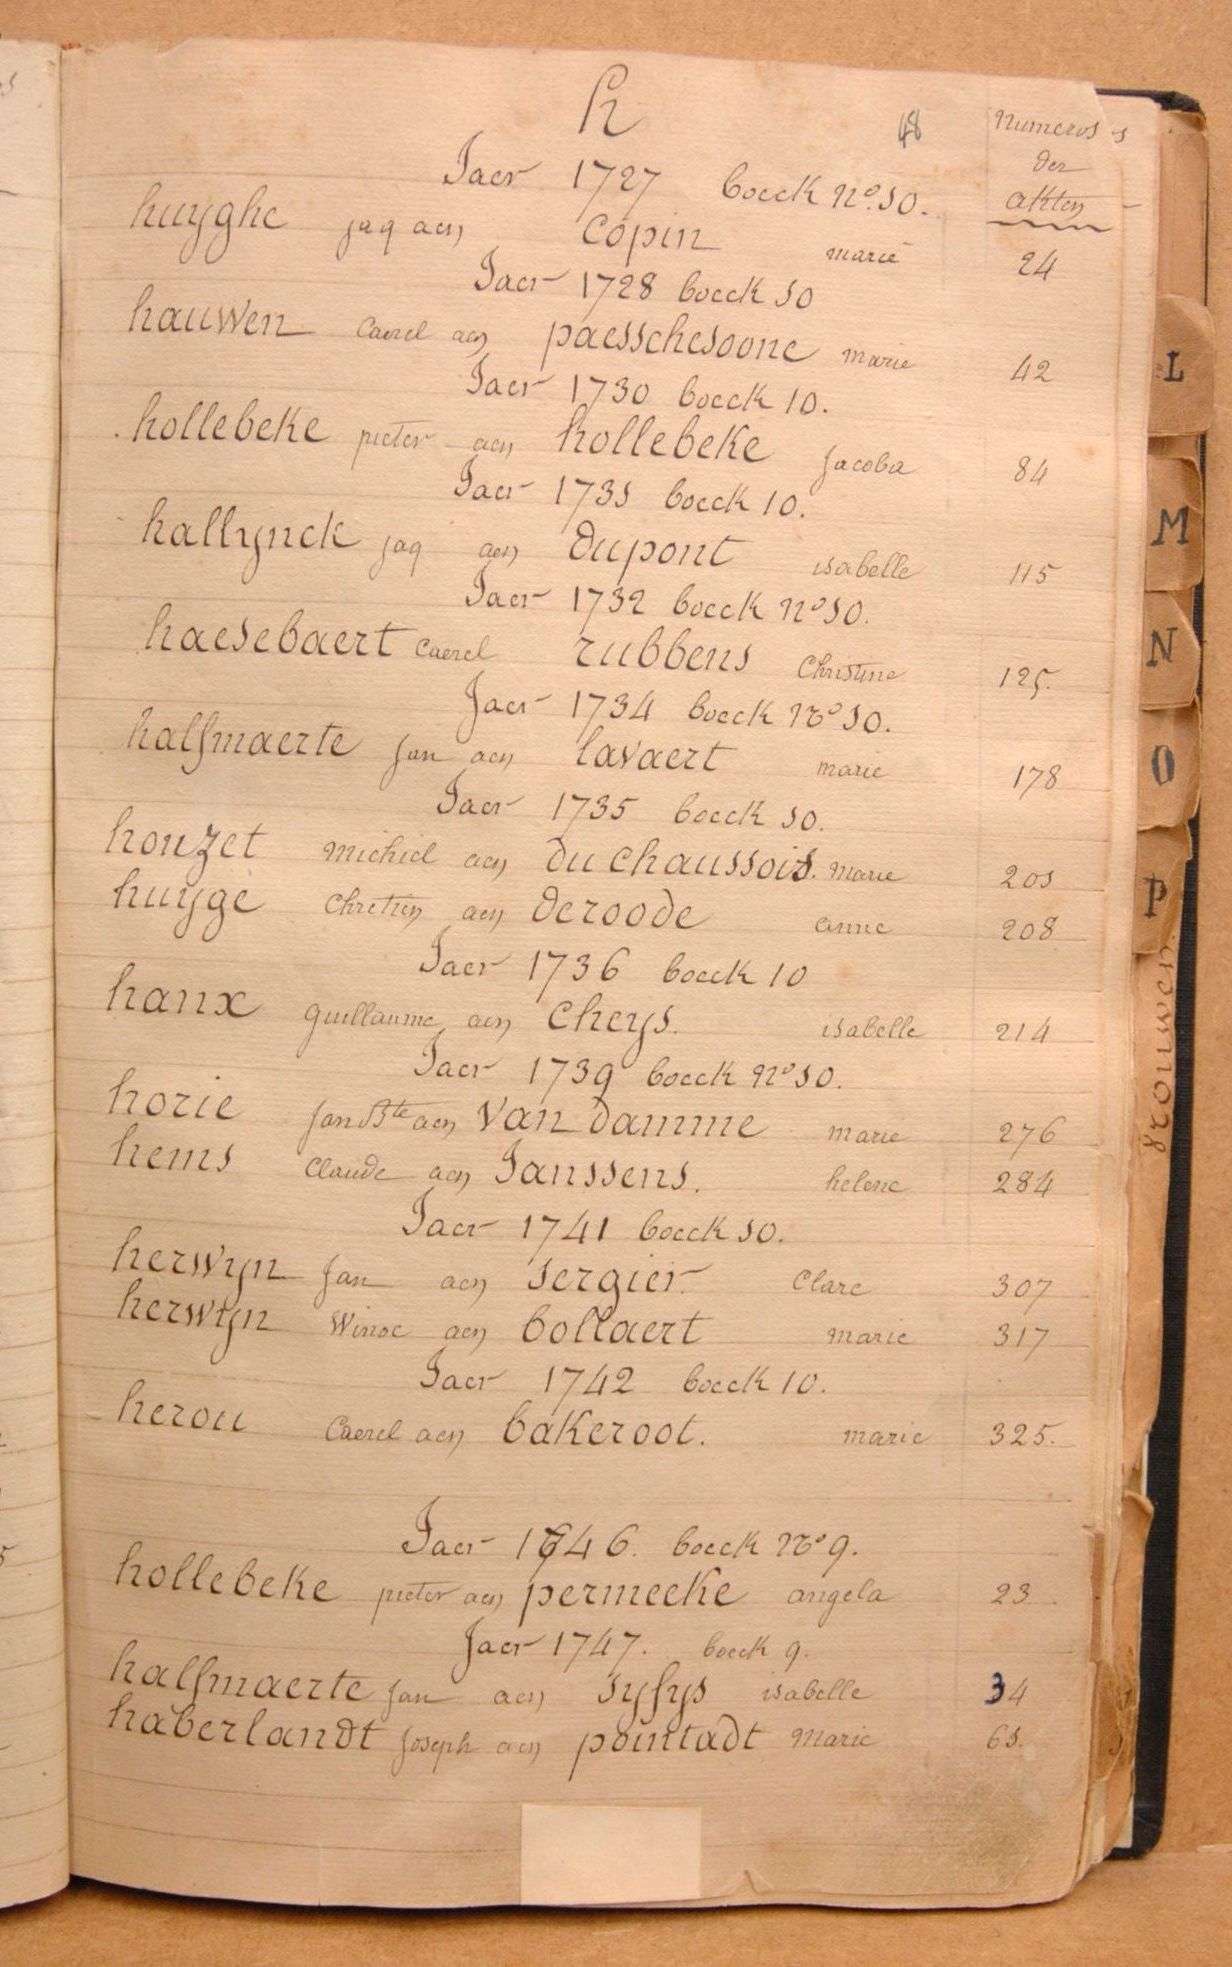 h
48
Numeros
der
akten
Jaer 1727 boeck no. 10.
huyghe jaq aen Copin marie 24
Jaer 1728 boeck 10
hauwen Caerel aen paesschesoone marie 42
Jaer 1730 boeck 10.
hollebeke pieter aen hollebeke Jacoba 84
Jaer 1731 boeck 10.
hallynck jaq aen dupont isabelle 115
Jaer 1732 boeck No 10.
haesebaert Caerel rubbens Christine 125.
Jaer 1734 boeck No 10.
halfmaerte Jan aen lavaert marie 178
Jaer 1735 boeck 10.
houzet michiel aen du chaussois. marie 201
huyge chretien aen deroode anne 208
Jaer 1736 boeck 10
hanx guillaume aen Cheys. isabelle 214
Jaer 1739 boeck No 10.
horie Jan Bte aen Van damme marie 276
hems Claude aen Janssens. helene 284
Jaer 1741 boeck 10.
herwyn Jan aen sergier Clare 307
herwyn Winoc aen bollaert marie 317
Jaer 1742 boeck 10.
herou Caerel aen bakeroot. marie 325.
Jaer 1746. boeck No 9.
hollebeke pieter aen permeeke angela 23
Jaer 1747. boeck 9.
halfmaerte Jan aen syfys isabelle 34
haberlandt Joseph aen pointadt Marie 61.
L
M
N
O
P
vrouwen